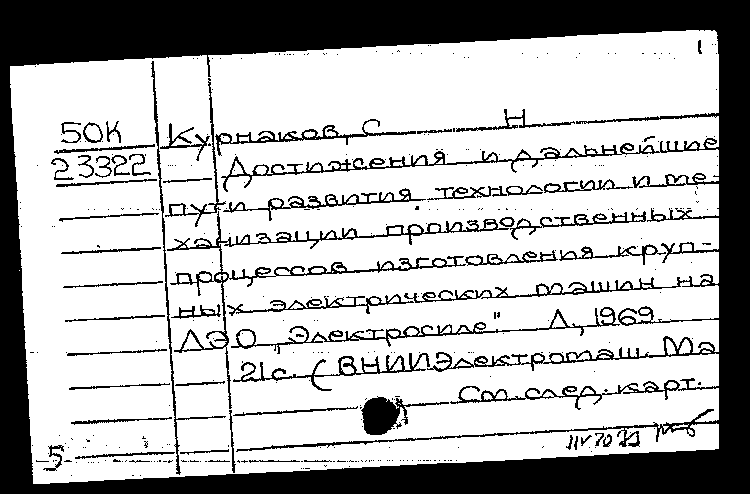 1
50К Курнаков, С Н
23322 Достижения и дальнейшие
пути развития технологии и ме-
ханизации производственных
процессов изготовления круп-
ных электрических машин на
ЛЭО „Электросила". Л, 1969.
21с. (ВНИИЭлектромаш. Ма
См. след. карт.
5